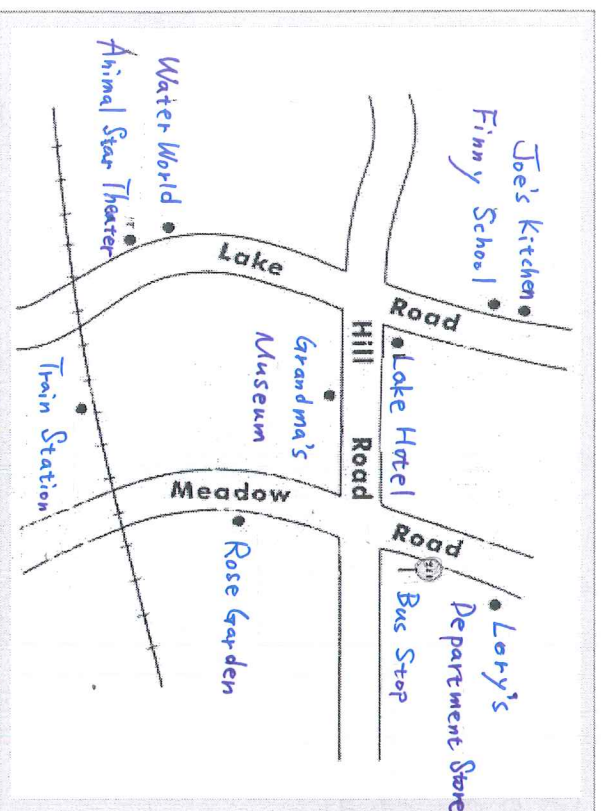 Joe's Kitchen
Finny School
Lory's
Department Store
Lake Road
Lake Hotel
Meadow Road
Bus Stop
Hill Road
Grandma's
Museum
Rose Garden
Water World
Animal Star Theater
Train Station